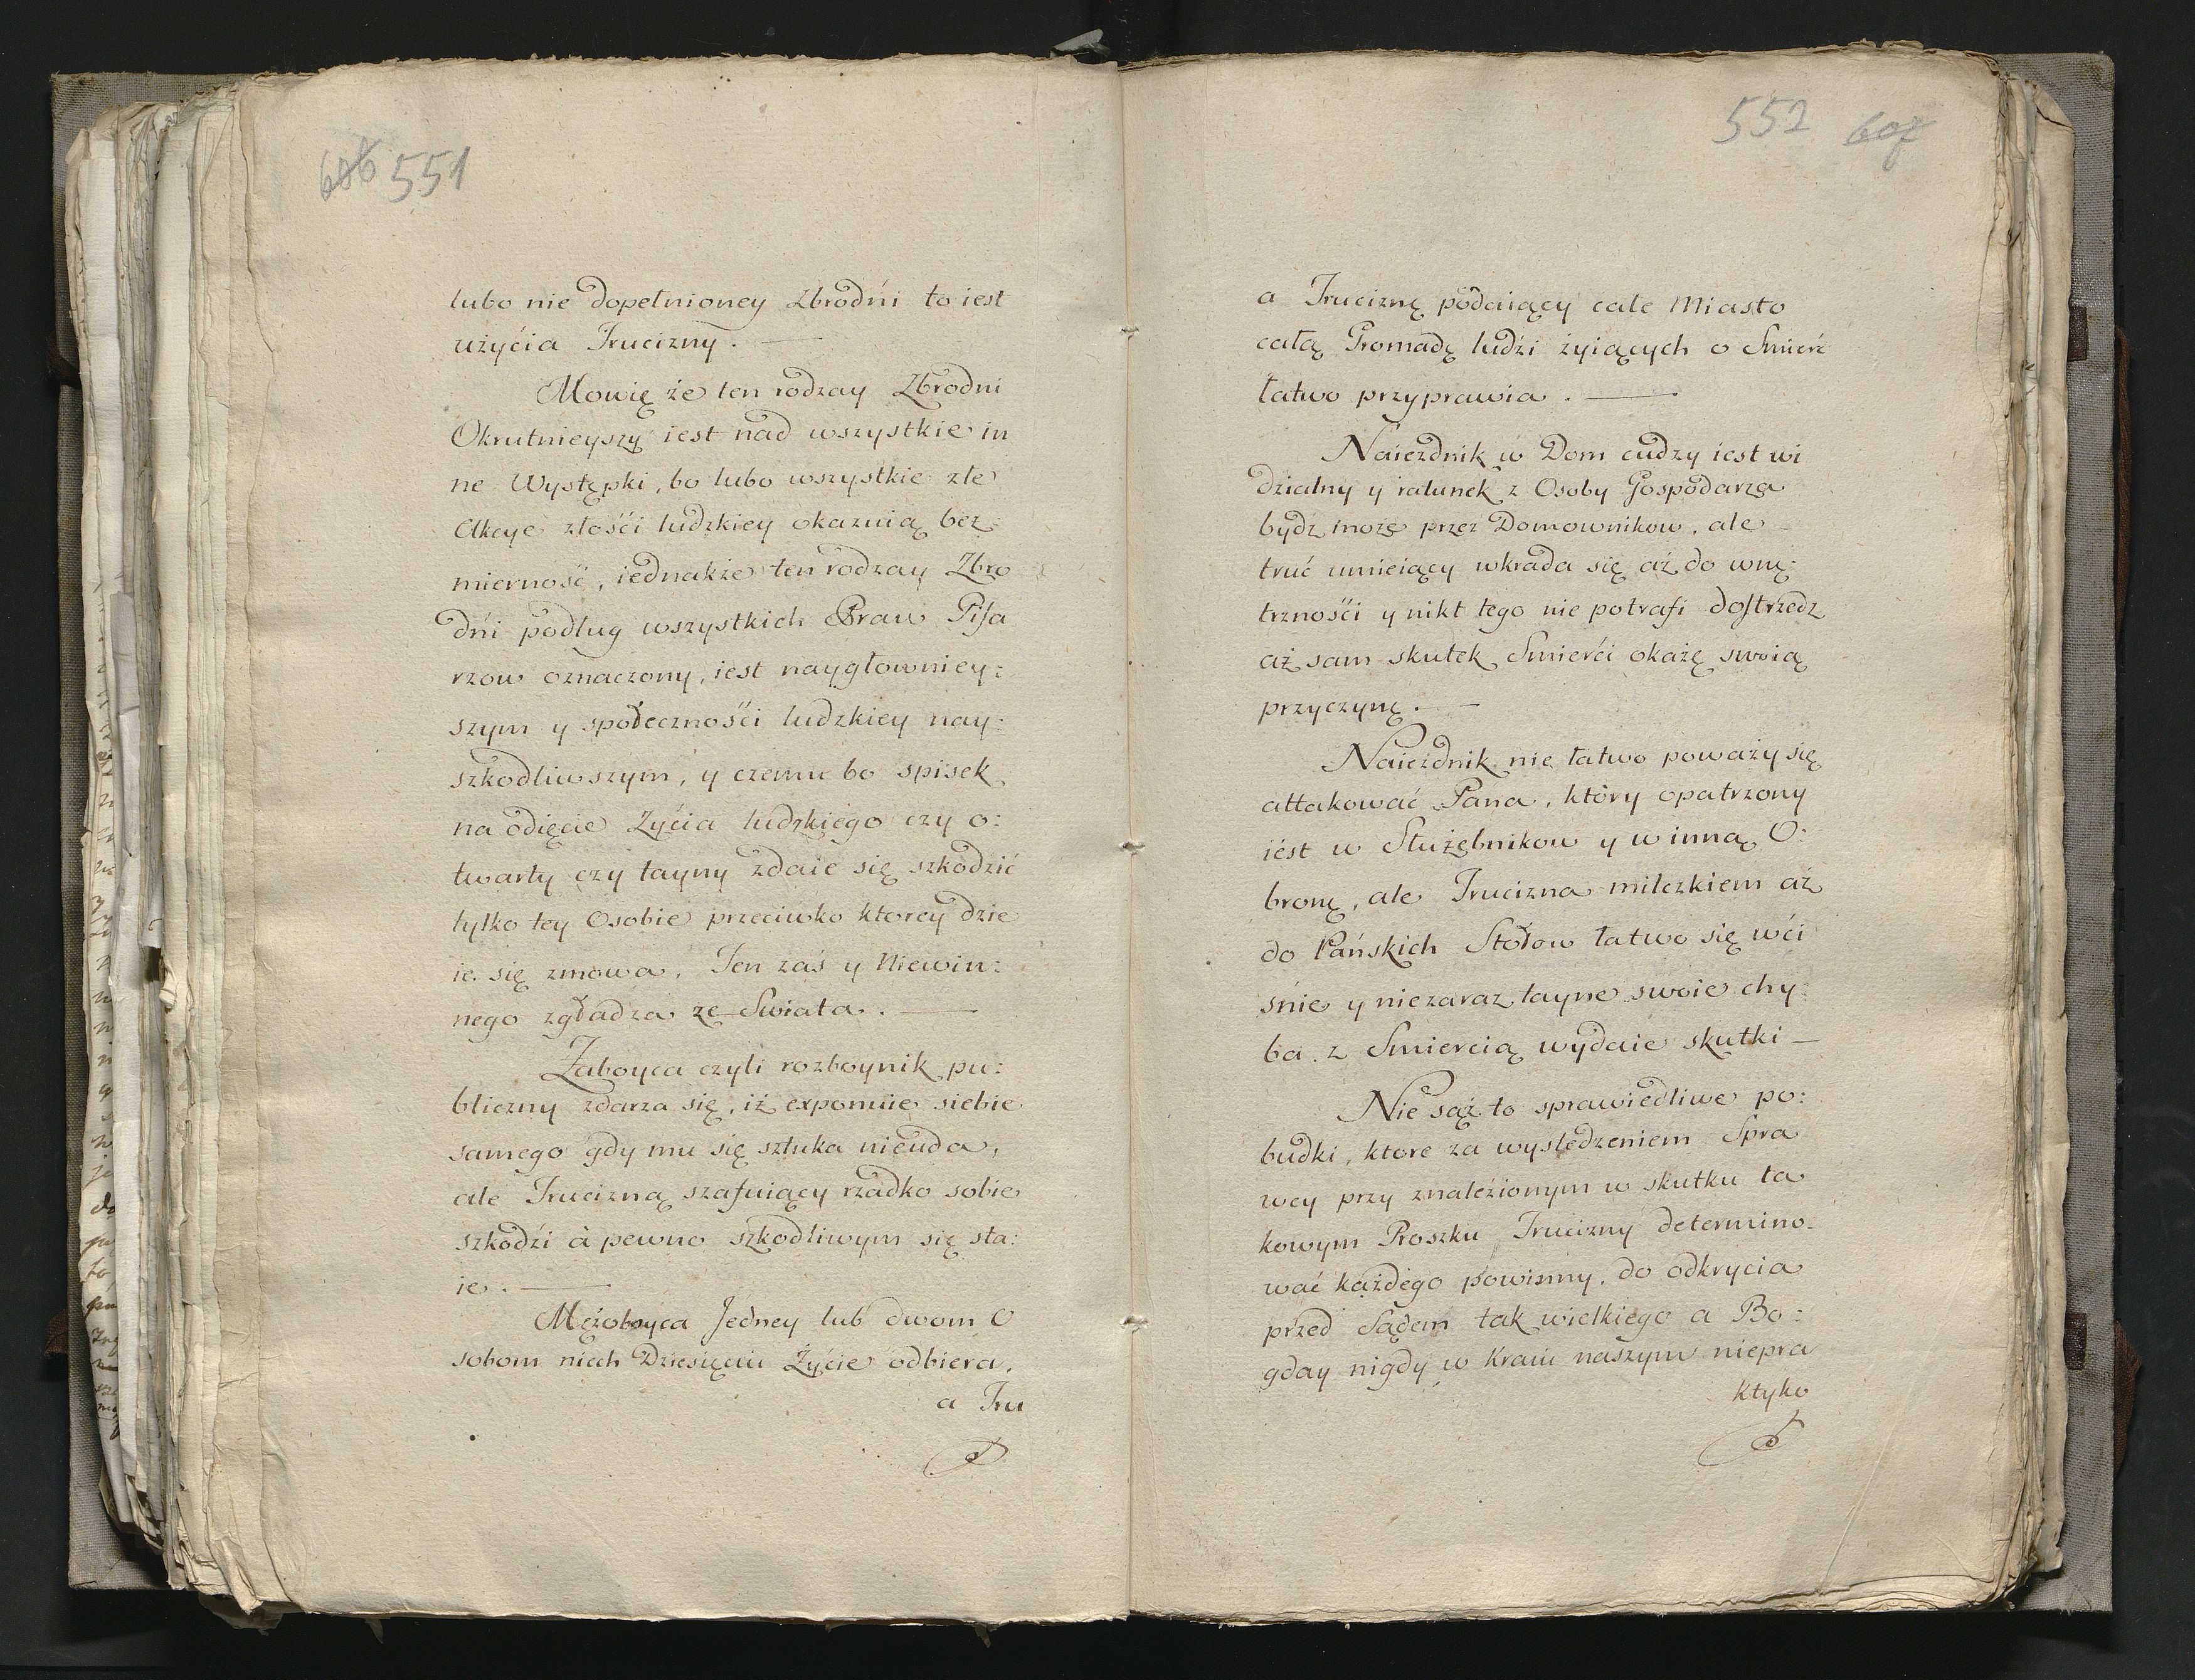 606 551
lubo nie dopełnioney Zbrodńi to iest
użyćia Trucizny. —
Mowię że ten rodzay Zbrodni
Okrutnieyszy iest nad wszystkie in
ne Występki, bo lubo wszystkie złe
Akcye złośći ludzkiey okaznią bez:
mierność, iednakże ten rodzay Zbro
dńi podług wszystkich Praw Pisa
rzow oznaczony, iest naygłowniey:
szym y społecznośći ludzkiey nay:
szkodliwszym, y czemu bo spisek
na odięcie Żyćia ludzkiego czy o:
twarty czy tayny zdaie się szkodzić
tylko tey Osobie przeciwko ktorey dzie
ie się zmowa. Ten zaś y Niewin:
nego zgładza ze Swiata. —
Zaboyca czyli rozboynik pu:
bliczny zdarza się, iż exponuie siebie
samego gdy mu się sztuka nieuda,
ale Trucizną szafuiący rzadko sobie
szkodźi à pewno szkodliwym się sta:
ie. —
Mężoboyca Jedney lub dwom O
sobom niech Dziesięciu Życie odbiera,
a Tru
552 607
a Truciznę podaiący całe Miasto
całą Gromadę ludźi żyiących o Smierć
łatwo przyprawia. —
Naiezdnik w Dom cudzy iest wi
dzialny y ratunek z Osoby Gospodarza
bydz może przez Domownikow, ale
truć umieiący wkrada się aż do wnę:
trznośći y nikt tego nie potrafi dostrzedz
aż sam skutek Smierći okażę swoią
przyczynę. —
Naiezdnik nie łatwo poważy się
attakować Pana, który opatrzony
iést w Służębnikow y w inną O:
bronę, ale Trucizna milczkiem aż
do Pańskich Stołow łatwo się wći
śnie y niezaraz tayne swoie chy:
ba z Smiercią wydaie skutki —
Nie sąż to sprawiedliwe po:
budki, ktore za wysledzeniem Spra
wcy przy znaleźionym w skutku ta
kowym Proszku Trucizny determino-
wać każdego powinny, do odkrycia
przed Sądem tak wielkiego a Bo:
gday nigdy w Kraiu naszym niepra
ktyko